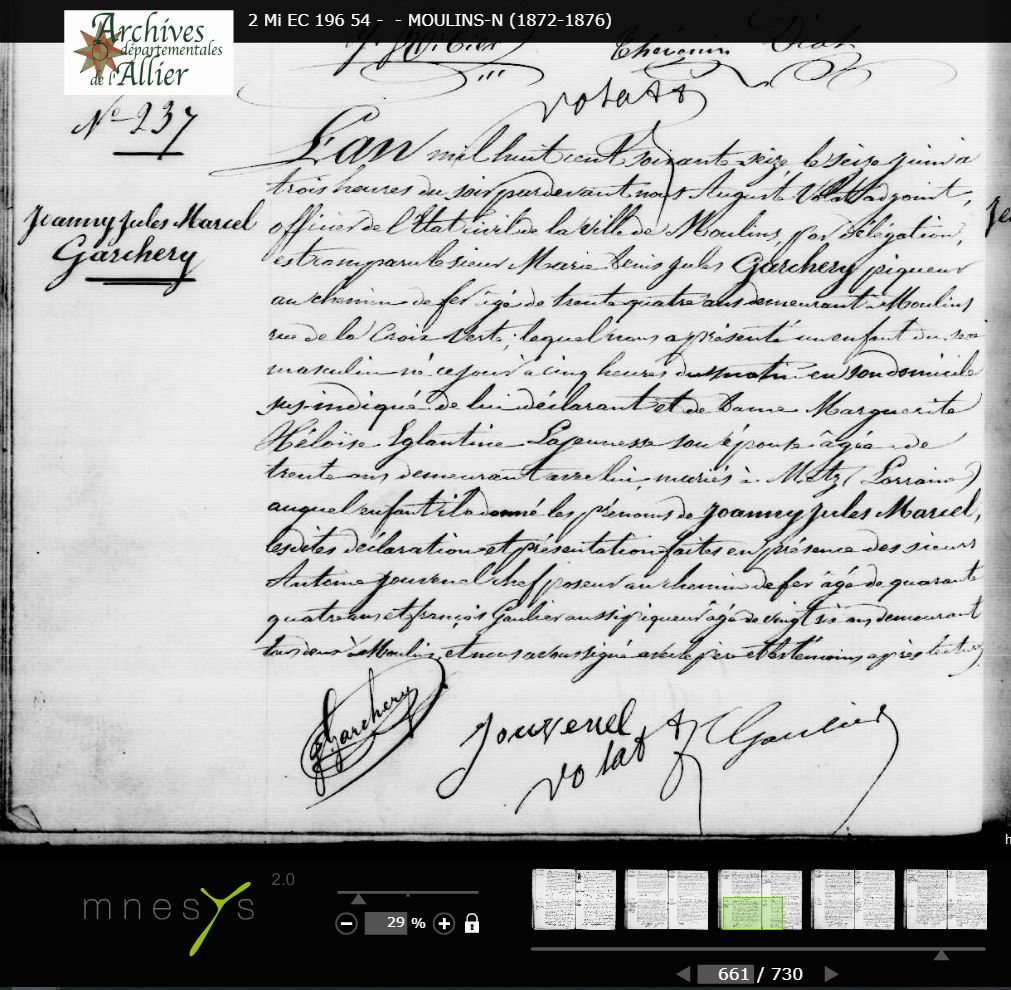 2 Mi EC 196 54 - - MOULINS-N (1872-1876)
Archives
départementales
de l'Allier
Thévenin Diot
Volat
N° 237
L'an mil huit cent soixante seize le seize juin à
trois heures du soir pardevant nous Auguste Volat adjoint,
Joanny Jules Marcel
Garchery
officier de l'État civil de la Ville de Moulins, par délégation,
est comparu le sieur Marie Denis Jules Garchery piqueur
au chemin de fer âgé de trente quatre ans demeurant à Moulins
rue de la Croix Verte; lequel nous a présenté un enfant du sexe
masculin né ce jour à cinq heures du matin en son domicile
sus-indiqué de lui déclarant et de Dame Marguerite
Héloïse Eglantine Lajeunesse son épouse âgée de
trente ans demeurant avec lui, mariés à Metz (Lorraine)
auquel enfant il a donné les prénoms de Joanny Jules Marcel,
lesdites déclaration et présentation faites en présence des sieurs
Antoine Jouvenel chef poseur au chemin de fer âgé de quarante
quatre ans et françois Gaulier aussi piqueur âgé de vingt six ans demeurant
tous deux à Moulins, et nous avons signé avec le père et les témoins après lecture
Garchery
Jouvenel
Gaulier
Volat
mnesys
2.0
29 %
661 / 730